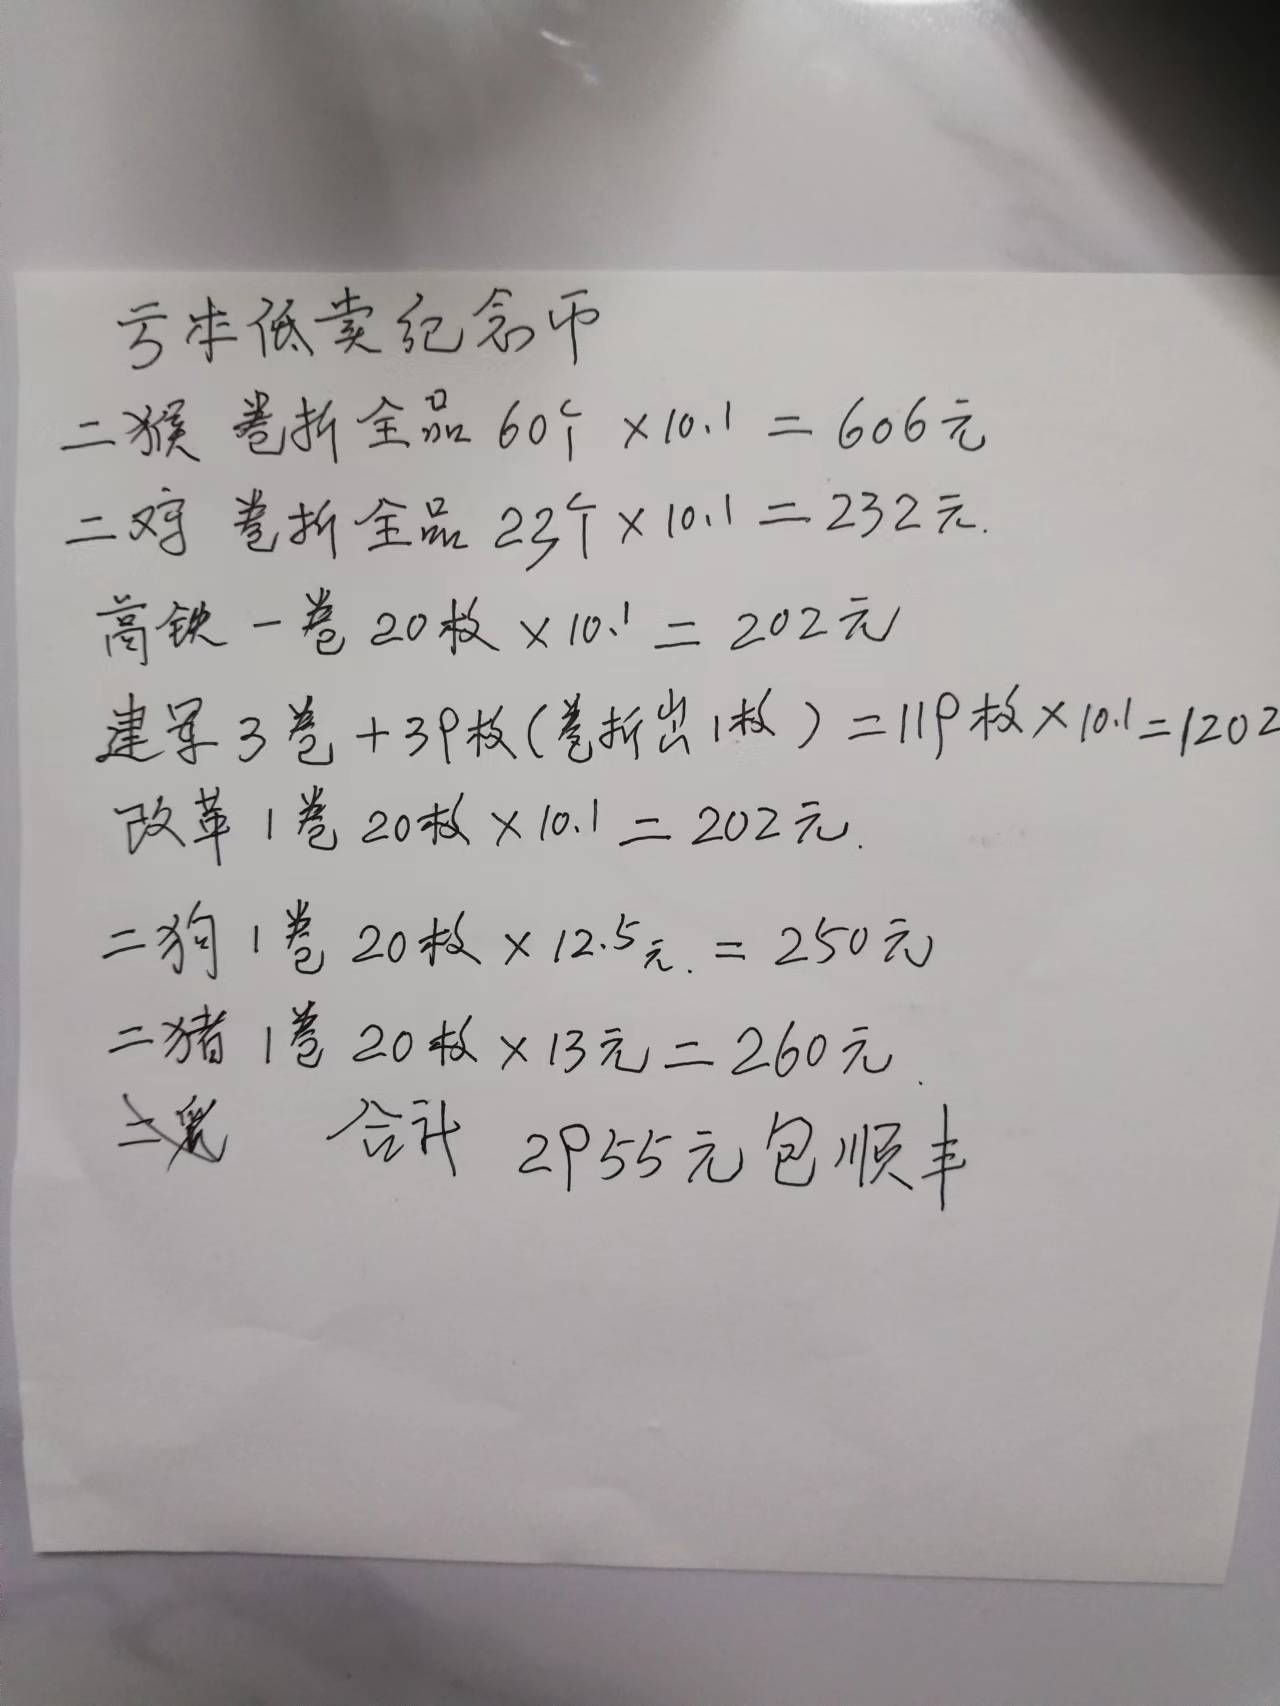 亏本低卖纪念币
二猴 卷拆全品 60个 ×10.1 = 606元
二鸡 卷拆全品 23个 ×10.1 = 232元.
高铁 一卷 20枚 ×10.1 = 202元
建军 3卷 +39枚(卷拆出1枚) =119枚×10.1=1202
改革 1卷 20枚 ×10.1 = 202元.
二狗 1卷 20枚 × 12.5元. = 250元
二猪 1卷 20枚 ×13元 = 260元.
合计 2955元包顺丰